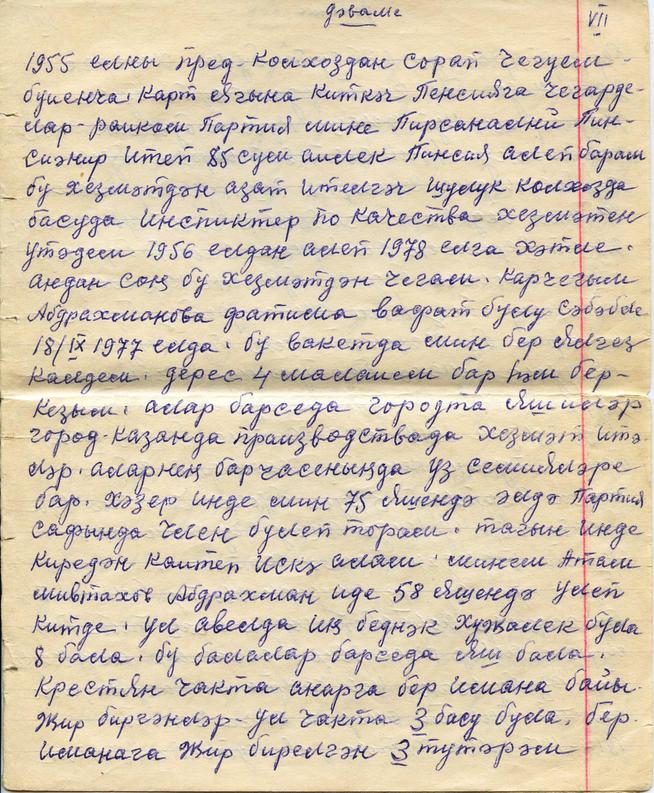 дәвамы
VII
1955 елны пред-колхоздан сорап чегуем-
буенча. Карт ягына киткәч Пенсияга чегарде-
ләр-райком Партия мине Пирсанальни Пин-
сианир итеп 85 сум айлек Пинсия алеп барам
бу хезмәтдән азат ителгәч шулук колхозда
басуда инспиктер по качества хезмәтен
үтәдем 1956 елдан алеп 1978 елга хәтле.
андан соң бу хезмәтдән чегам. Карчегым
Абдрахманова фатима вафат булу сәбәбле
18/IX 1977 елда. бу вакетда мин бер ялгез
калдем. дерес 4 малаем бар һәм бер-
кезым. алар барседа городта яшиләр
город-Казанда производствада хезмәт итә-
ләр. аларнең барчасеныңда уз семияләре
бар. хәзер инде мин 75 яшендә әлдә Партия
сафында член булеп торам. тагын инде
киредән кайтеп искә алам. минем Атам
мивтахов Абдрахман иде 58 яшендә үлеп
китде. ул авелда иң беднәк хужалек була
8 бала. бу балалар барседа яш бала.
крестян чакта анарга бер имана байы.
жир биргәнләр-ул чакта 3 басу була. бер.
иманага жир бирелгән 3 тутәрәм